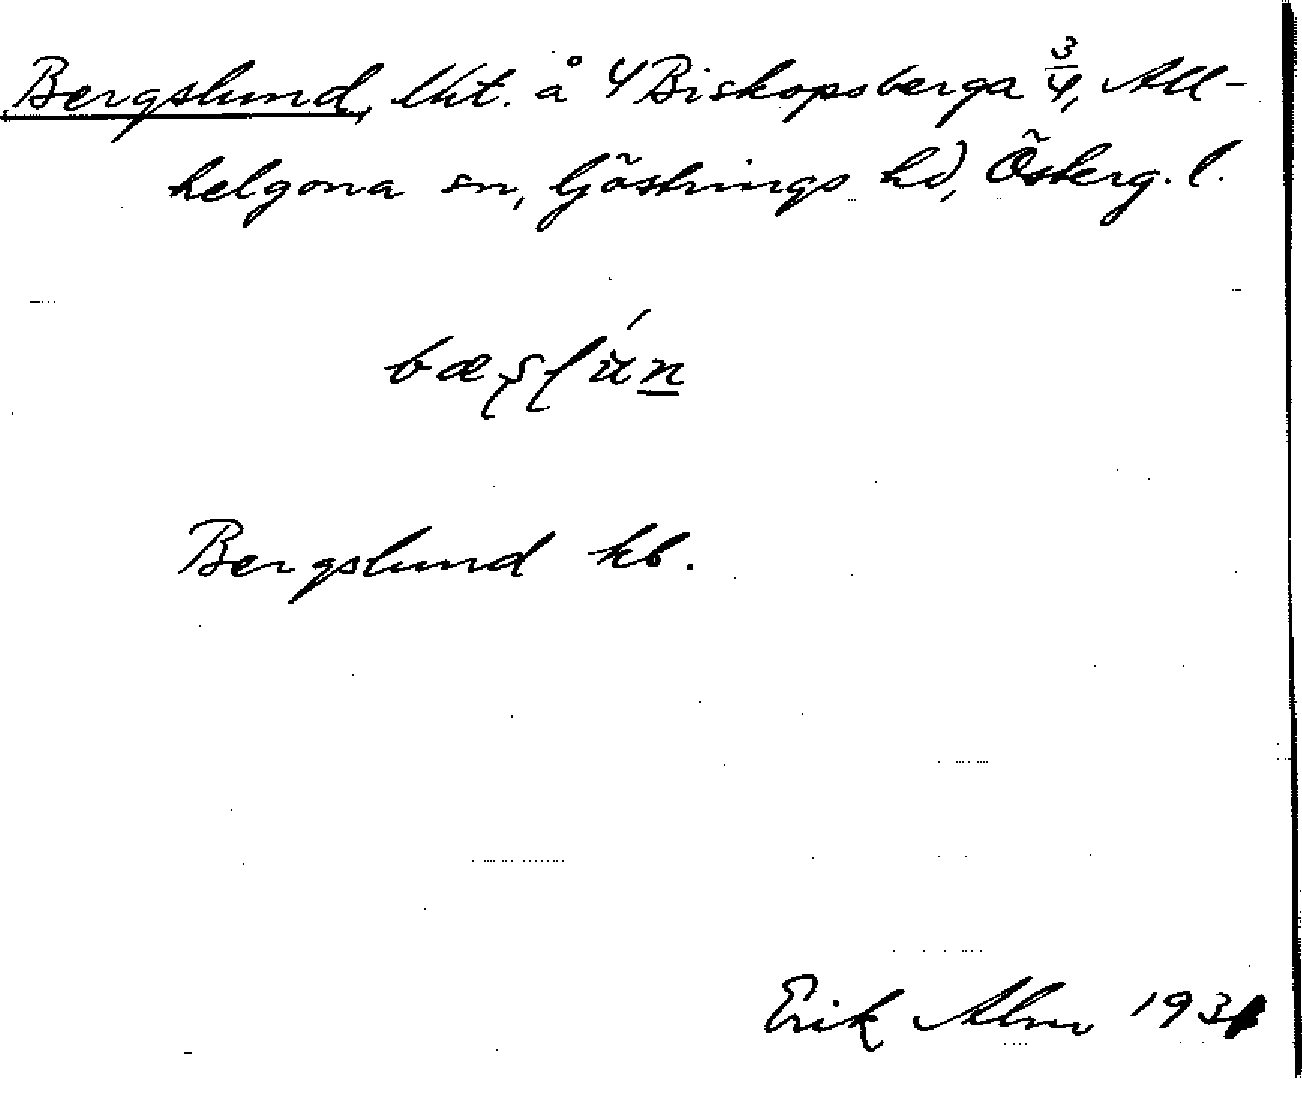 Bergslund, lht. å 4 Biskopsberga 3/4, All-
helgona sn, Göstrings hd, Österg. l.
Bergslund kb.
Erik Alm 1931